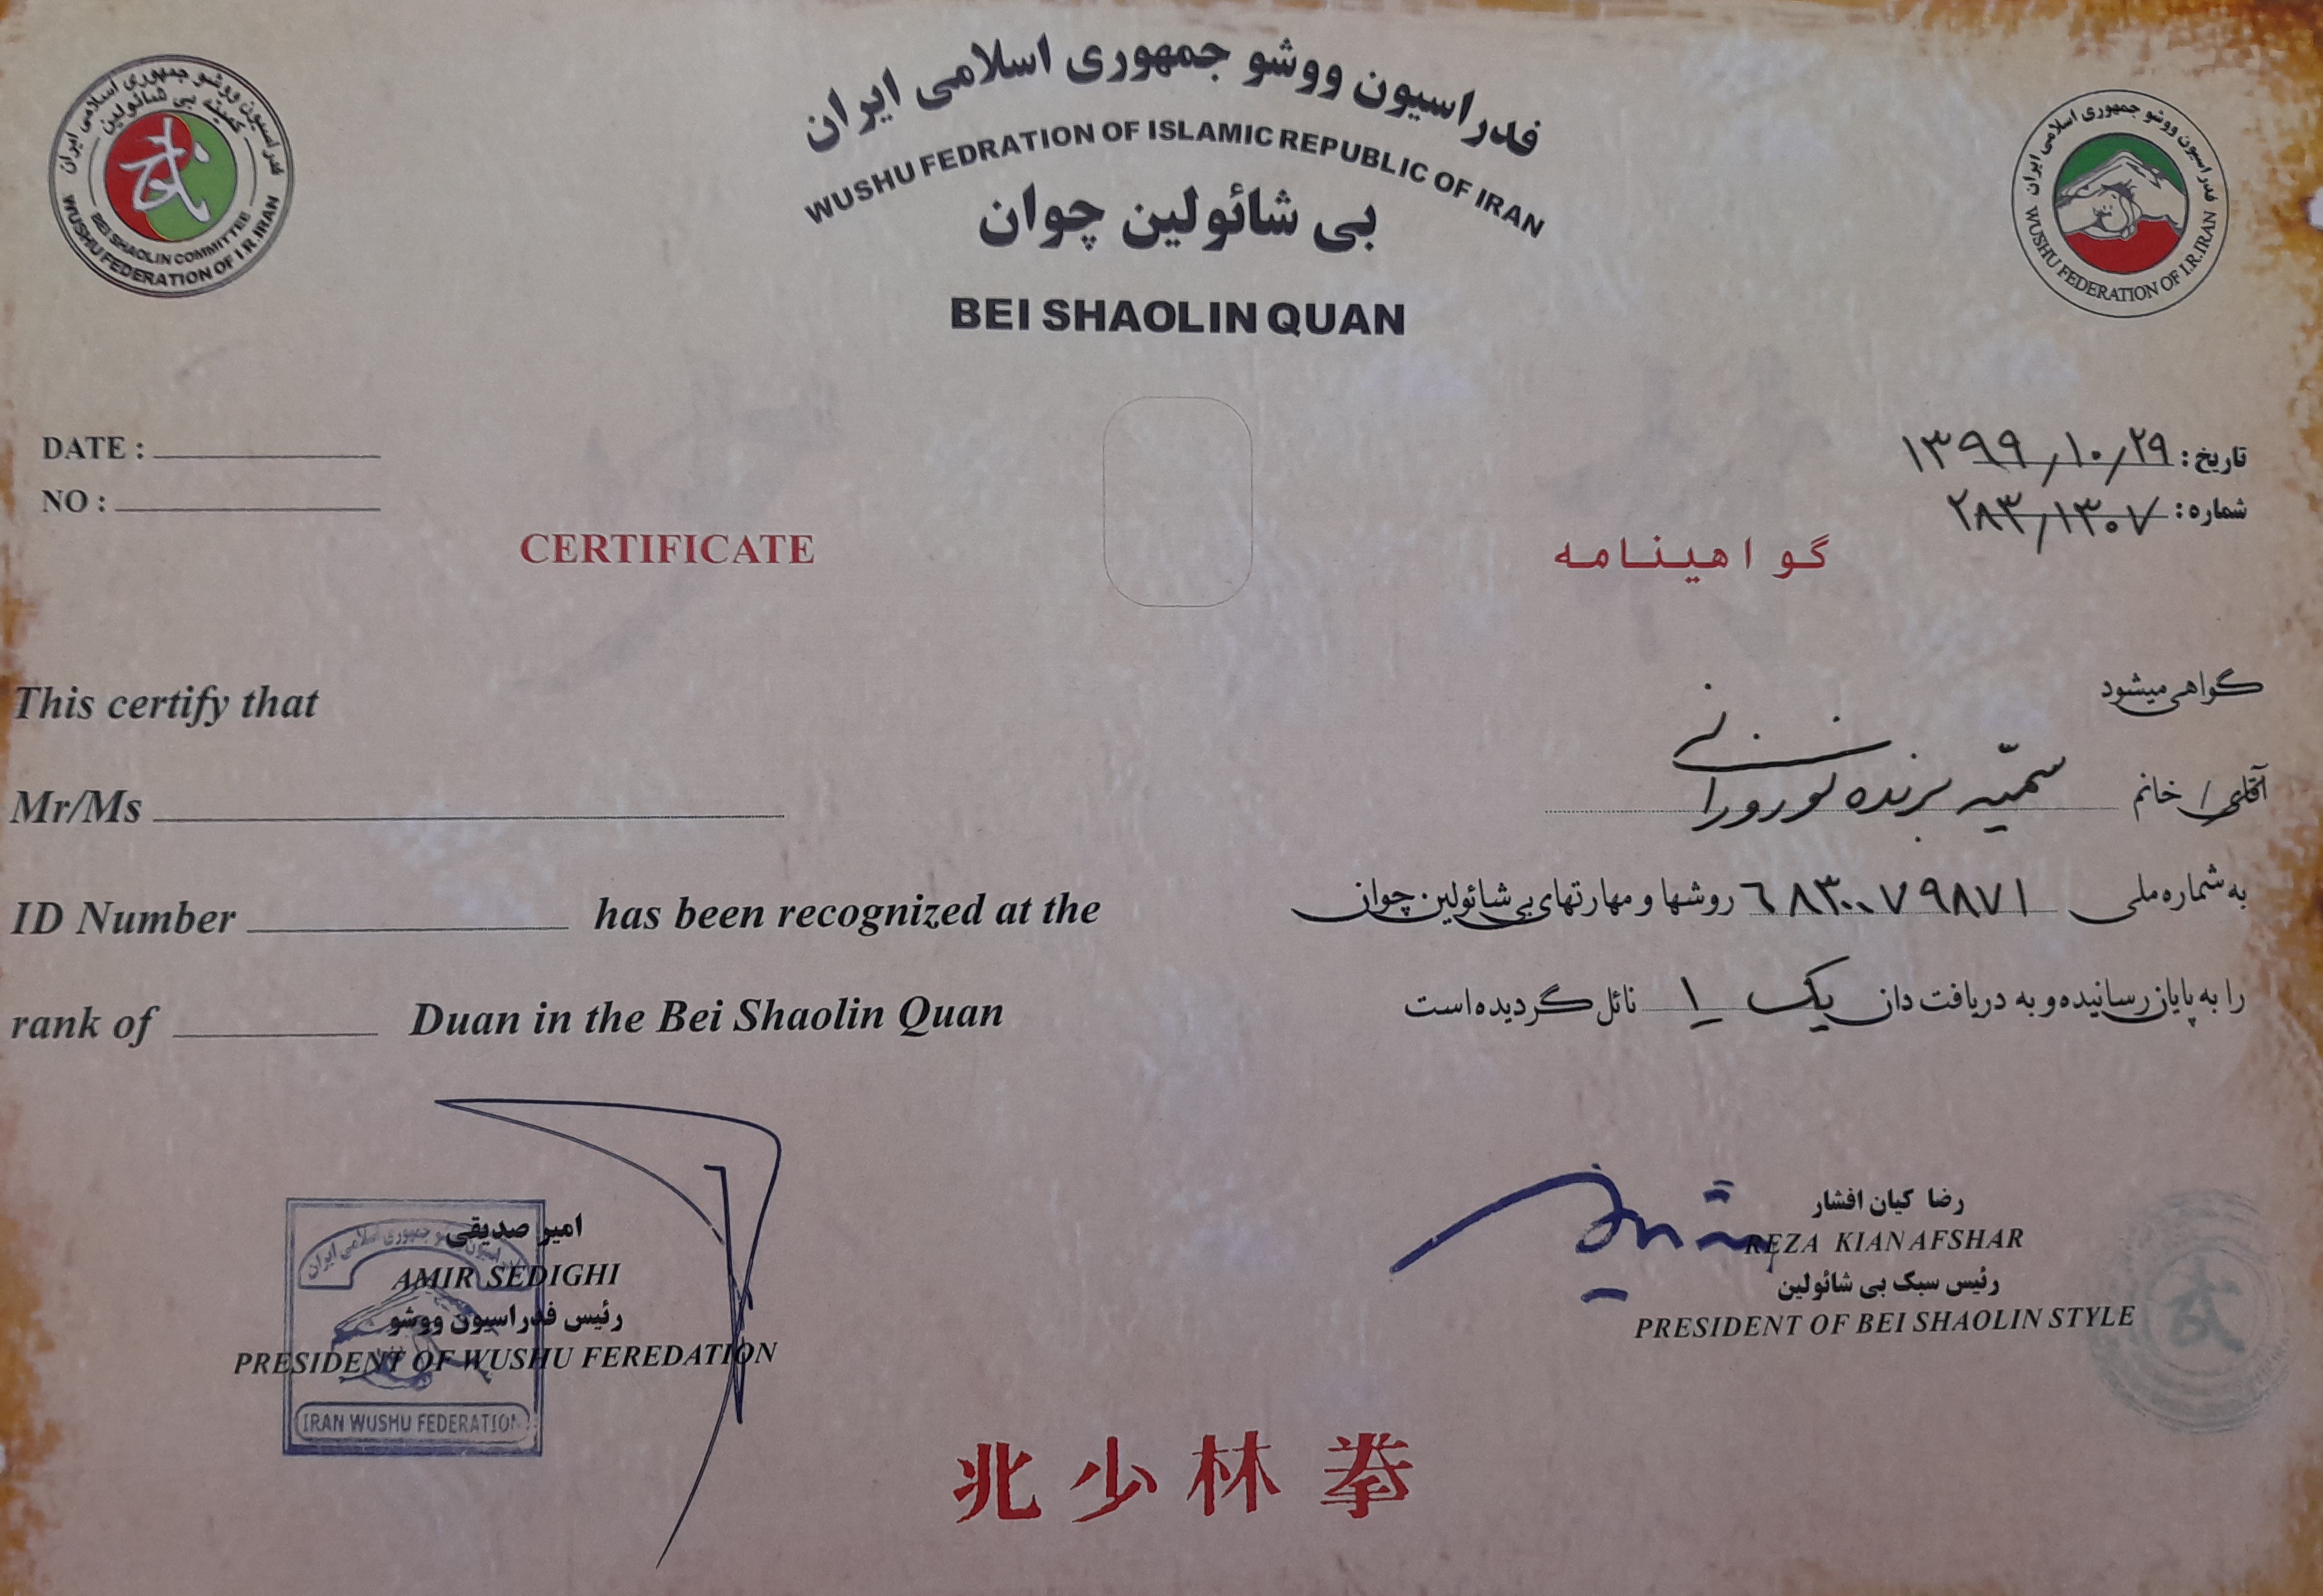 فدراسیون ووشو جمهوری اسلامی ایران
WUSHU FEDRATION OF ISLAMIC REPUBLIC OF IRAN
بی شائولین چوان
BEI SHAOLIN QUAN
فدراسیون ووشو جمهوری اسلامی ایران
کمیته بی شائولین
BEI SHAOLIN COMMITTEE
WUSHU FEDERATION OF I.R. IRAN
فدراسیون ووشو جمهوری اسلامی ایران
WUSHU FEDERATION OF I.R.IRAN
DATE :
NO :
تاریخ: ۱۳۹۹/۱۰/۲۹
شماره: ۲۸۳/۱۳۰۷
CERTIFICATE
گواهینامه
This certify that
Mr/Ms
ID Number has been recognized at the
rank of Duan in the Bei Shaolin Quan
گواهی میشود
آقای/خانم سمیّه برنده نوروزانی
به شماره ملی ٦٨٣٠٠٧٩٨٧١ روشها و مهارتهای بی شائولین چوان
را به پایان رسانیده و به دریافت دان یک ۱ نائل گردیده است
امیر صدیقی
AMIR SEDIGHI
رئیس فدراسیون ووشو
PRESIDENT OF WUSHU FEREDATION
IRAN WUSHU FEDERATION
رضا کیان افشار
REZA KIAN AFSHAR
رئیس سبک بی شائولین
PRESIDENT OF BEI SHAOLIN STYLE
北少林拳